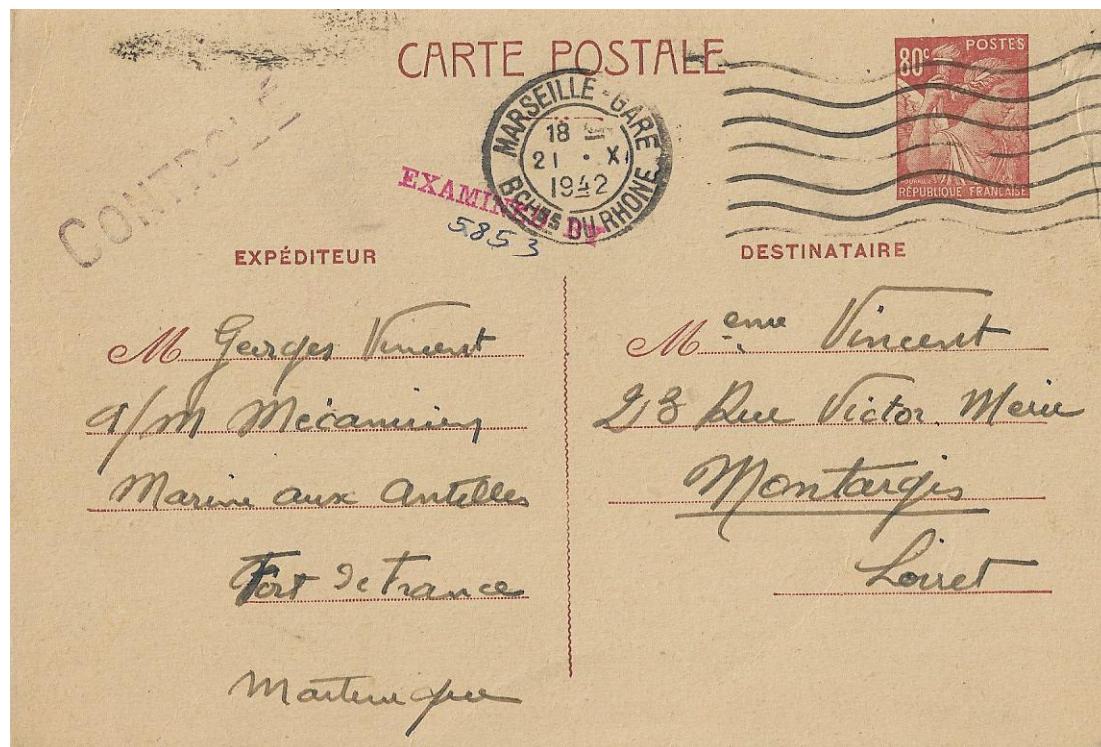 CARTE POSTALE
80c POSTES
RÉPUBLIQUE FRANÇAISE
MARSEILLE-GARE
18
21 • XI
1942
BCHES DU RHONE
CONTROLE
EXAMINED BY
5853
EXPÉDITEUR
M Georges Vincent
q/m Mécanicien
Marine aux Antilles
Fort de France
Martinique
DESTINATAIRE
Meme Vincent
23 Rue Victor
Montargis
Loiret